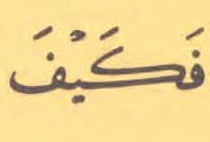 فَكَيْفَ